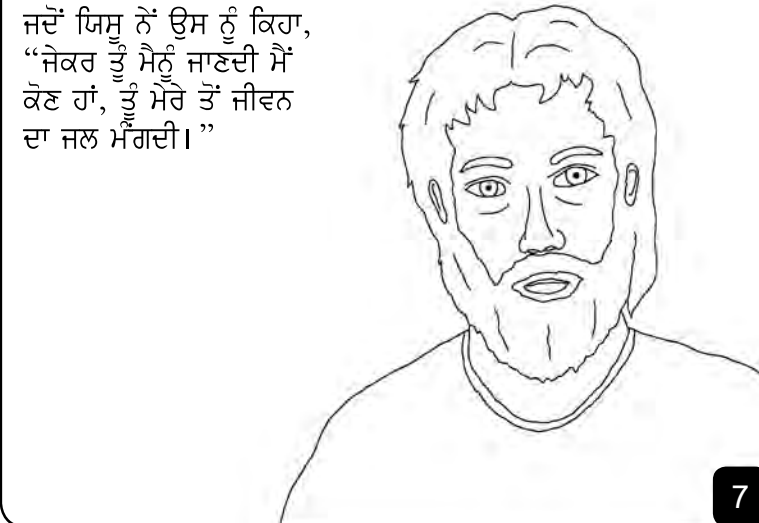 ਜਦੋਂ ਯਿਸੂ ਨੇਂ ਉਸ ਨੂੰ ਕਿਹਾ,
“ਜੇਕਰ ਤੂੰ ਮੈਨੂੰ ਜਾਣਦੀ ਮੈਂ
ਕੋਣ ਹਾਂ, ਤੂੰ ਮੇਰੇ ਤੋਂ ਜੀਵਨ
ਦਾ ਜਲ ਮੰਗਦੀ। ”
7